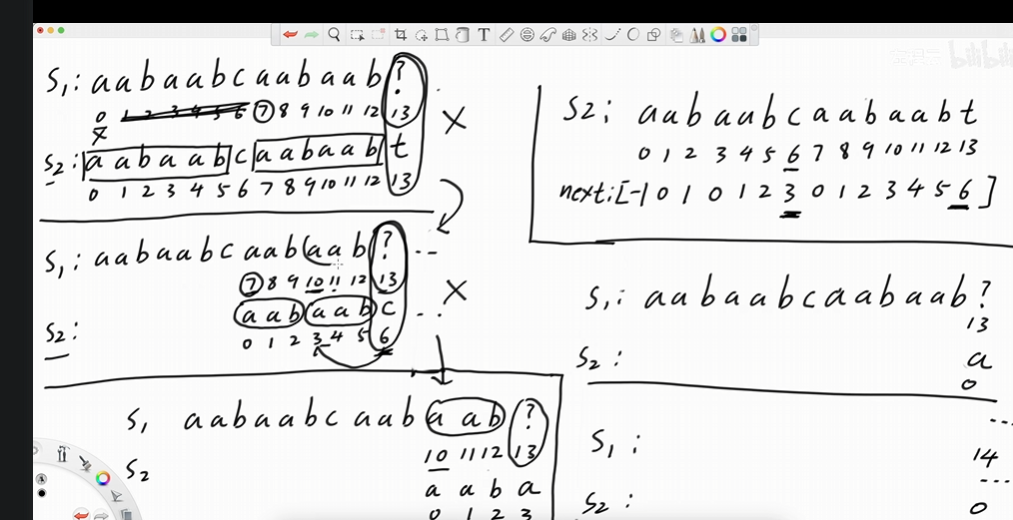 S1: aabaabcaabaab?
0 1 2 3 4 5 6 7 8 9 10 11 12 13
X
S2: aabaabcaabaabt
0 1 2 3 4 5 6 7 8 9 10 11 12 13
S1: aabaabcaabaab? --
7 8 9 10 11 12 13
X
S2: aabaabc ..
0 1 2 3 4 5 6
S1 aabaabcaabaab?
10 11 12 13
S2 a a b a
0 1 2 3
S2: aabaabcaabaabt
0 1 2 3 4 5 6 7 8 9 10 11 12 13
next:[-1 0 1 0 1 2 3 0 1 2 3 4 5 6]
S1: aabaabcaabaab?
13
S2: a
0
...
S1:
14
...
S2: 0
bilibili